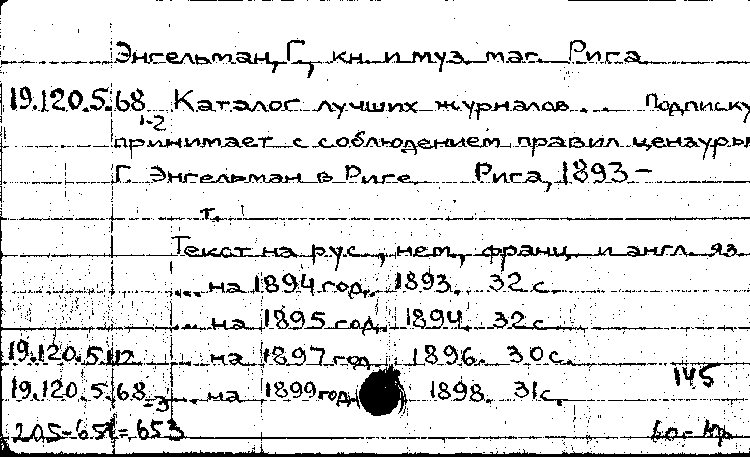 Энгельман, Г., кн. и муз. маг. Рига
19.120.5.68 Каталог лучших журналов... Подписку
1-2
принимает с соблюдением правил цензуры
Г. Энгельман в Риге. Рига, 1893 –
т.
Текст на рус., нем., франц. и англ. яз.
... на 1894 год. 1893. 32 с.
... на 1895 год. 1894. 32 с.
19.120.5.112 ... на 1897 год 1896. 30 с.
145
19.120.5.68 ... на 1899 год. 1898. 31 с.
-3
205-651=653